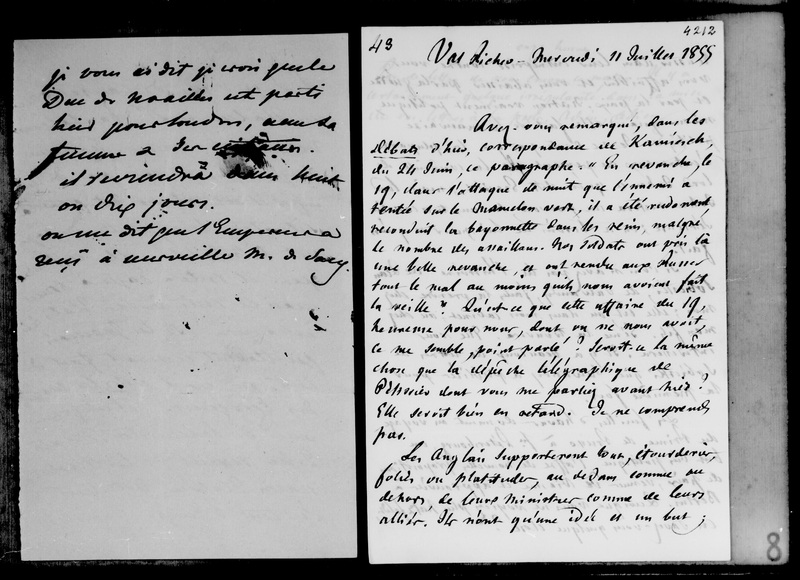 je vous ai dit je crois que le
Duc de Noailles est parti
hier pour Londres, avec sa
femme & ses
il reviendra dans huit
ou dix jours.
on me dit que l'Empereur a
reçu à merveille M. de Sacy.
43
4212
Val Richer - Mercredi 11 Juillet 1855
Avez-vous remarqué, dans les
Débats d'hier, correspondance de Kamiesch,
du 24 Juin, ce paragraphe : " En revanche, le
19, dans l'attaque de nuit que l'ennemi a
tentée sur le Mamelon vert, il a été rudement
reconduit la bayonnette dans les reins, malgré
le nombre des assaillans. Nos soldats ont pris là
une belle revanche, et ont rendu aux Russes
tout le mal au moins qu'ils nous avoient fait
la veille ". Qu'est-ce que cette affaire du 19,
heureuse pour nous, dont on ne nous avoit,
ce me semble, point parlé ? Seroit-ce la même
chose que la dépêche télégraphique de
Pélissier dont vous me parliez avant hier ?
Elle seroit bien en retard. Je ne comprends
pas.
Les Anglais supporteront tout, étourderies,
folies ou platitudes, au dedans comme au
dehors, de leurs ministres comme de leurs
alliés. Ils n'ont qu'une idée et un but ;
8